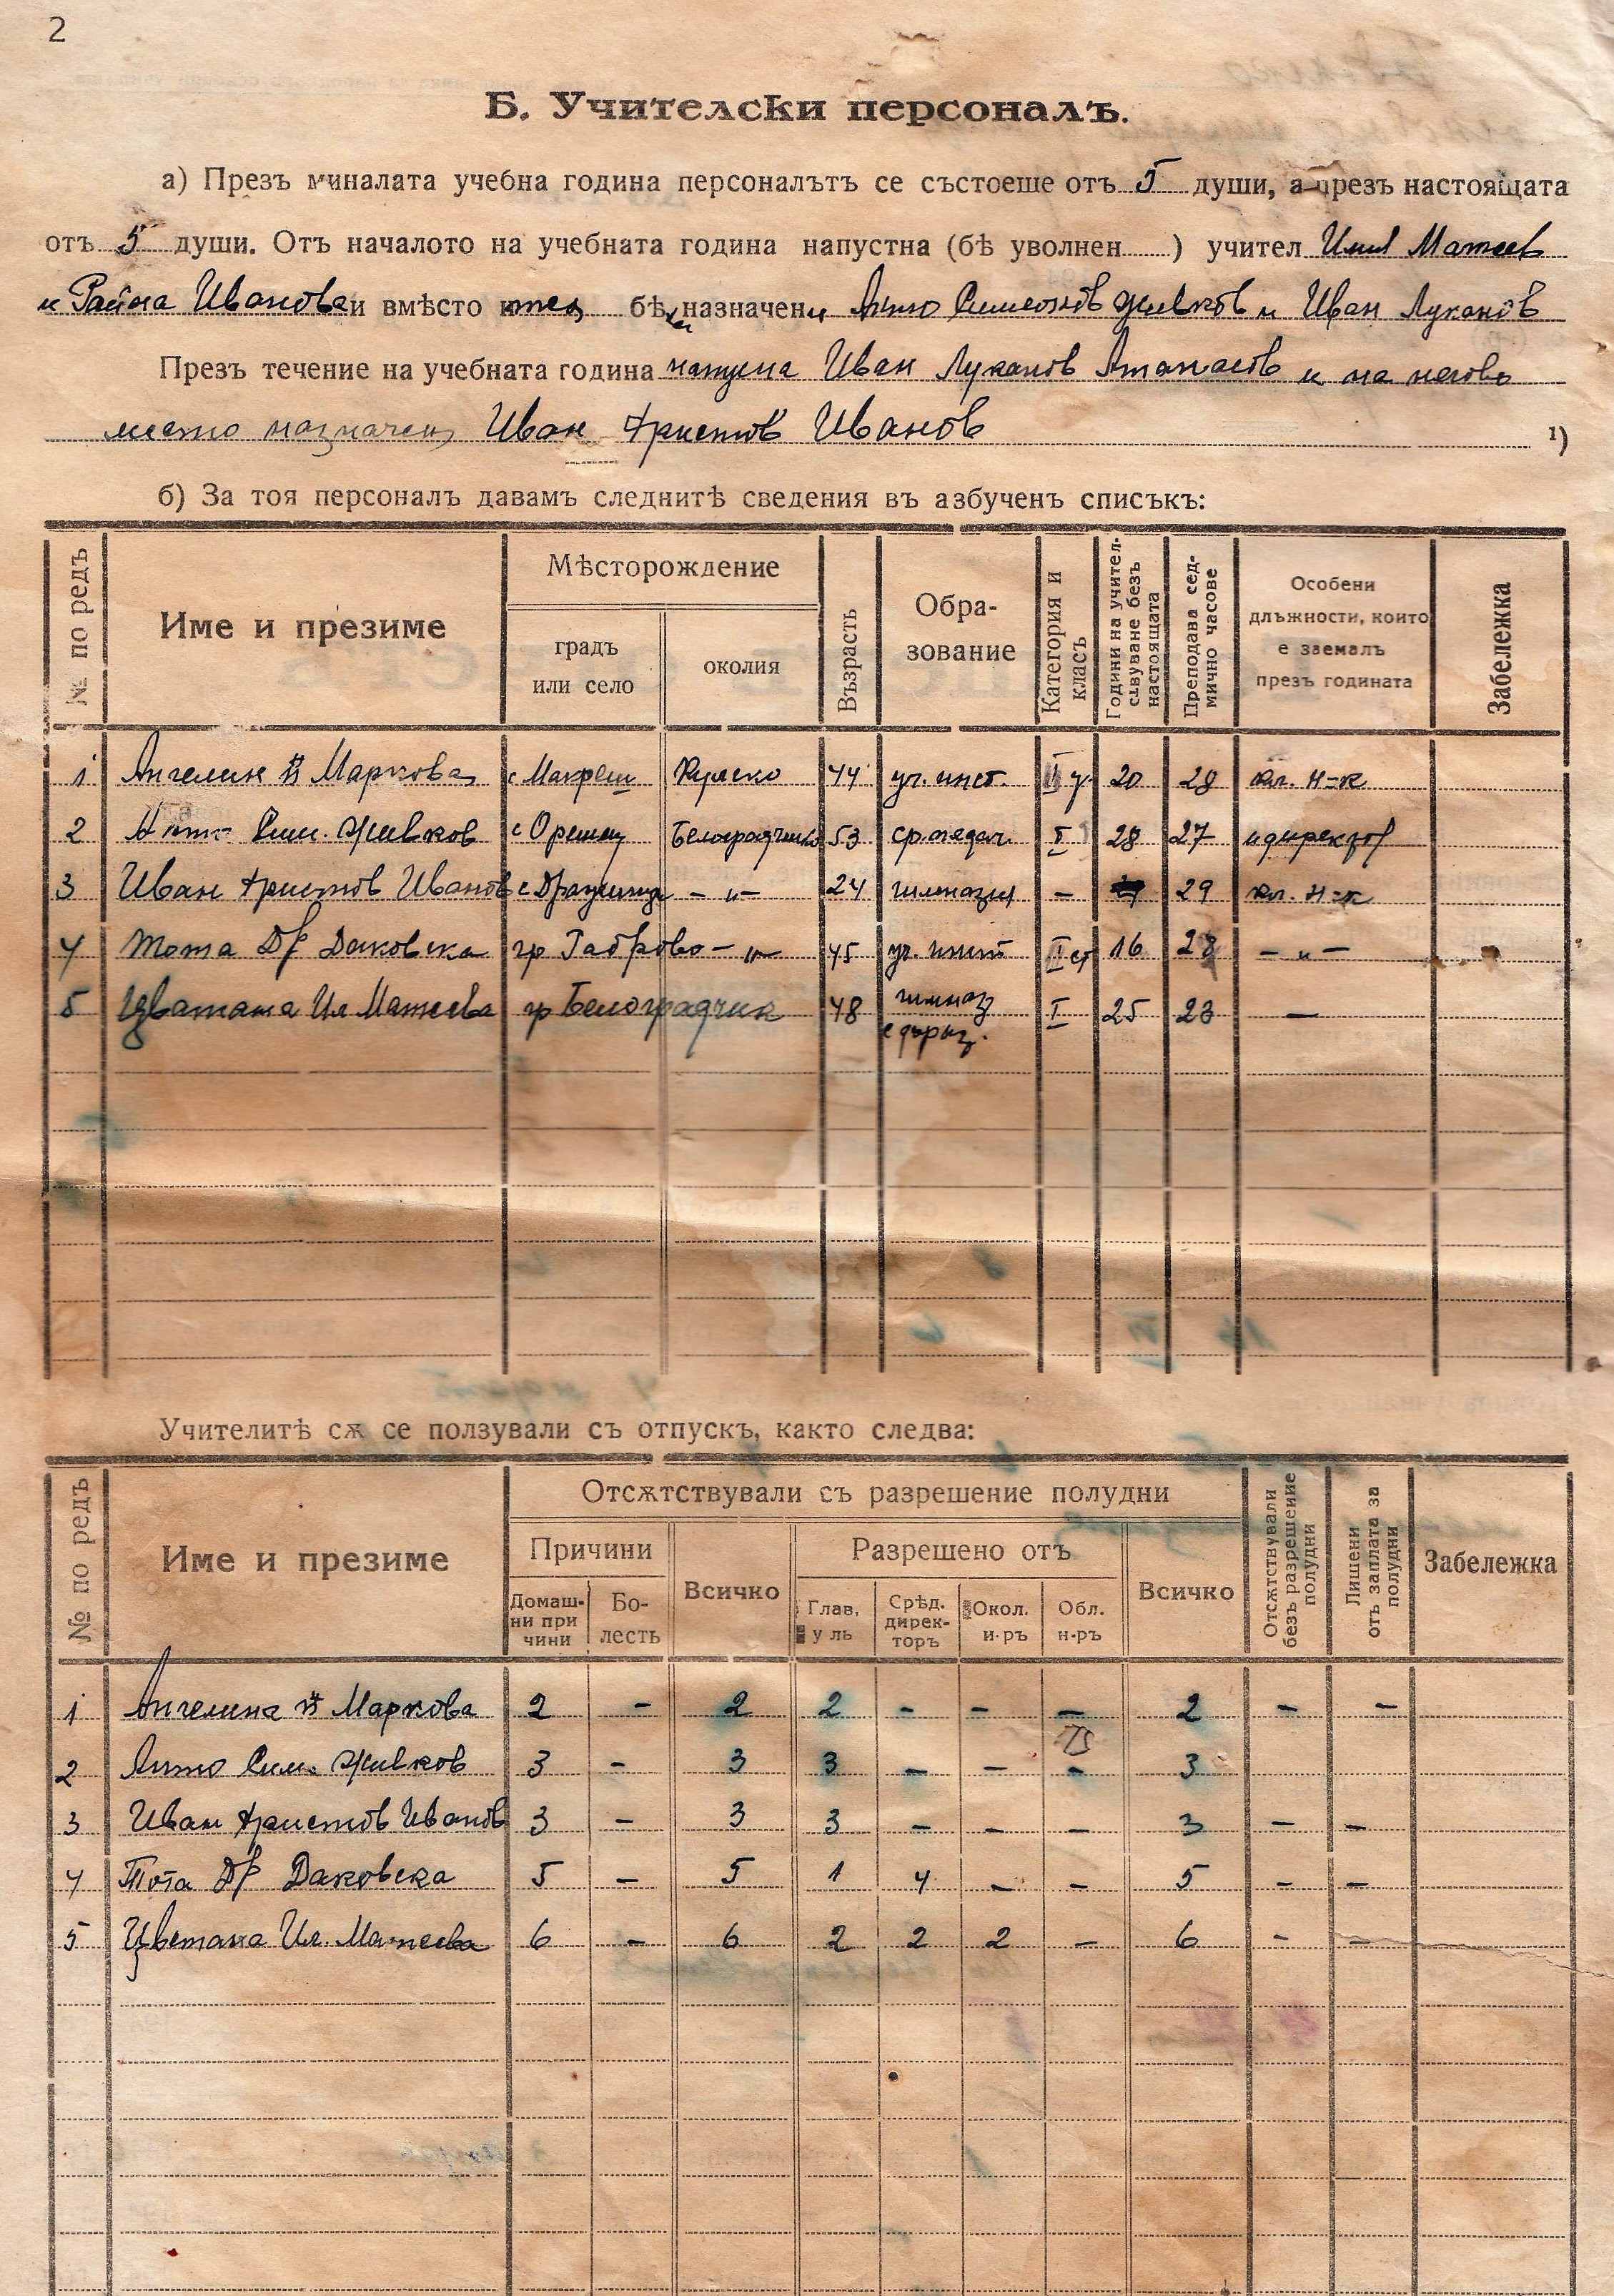 2
Б. Учителски персоналъ.
а) Презъ миналата учебна година персоналътъ се състоеше отъ 5 души, а презъ настоящата
отъ 5 души. Отъ началото на учебната година напустна (бѣ уволнен ) учител Илия Матеев
и Райна Иванова и вмѣсто тех бѣха назначени Анто Симеонов Живков и Иван Луканов
Презъ течение на учебната година напусна Иван Луканов Атанасов и на негово
место назначен Иван Христов Иванов ¹)
б) За тоя персоналъ давамъ следнитѣ сведения въ азбученъ списъкъ:
№ по редъ Име и презиме Мѣсторождение градъ или село околия Възрасть Обра-зование Категория и класъ Години на учител-ствуване безъ настоящата Преподава сед-мично часове Особени длъжности, които е заемалъ презъ годината Забележка
1 Ангелин Маркова с Макреш Кулско 44 уч. инст. II 20 28 кл. н-к
2 Анто Сим. Живков с Орешец Белоградчишко 53 ср. педаг. I 28 27 и директор
3 Иван Христов Иванов с - „ - 24 гимназия - 29 кл. н-к
4 Тота Др Даковска гр Габрово - „ 45 уч. инст II ст 16 28 - „ -
5 Цветана Ил Матеева гр Белоградчик 48 гимназ I 25 23 -
с държ.
Учителитѣ сѫ се ползували съ отпускъ, както следва:
№ по редъ Име и презиме Отсѫтствували съ разрешение полудни Причини Домаш-ни при чини Бо-лесть Всичко Разрешено отъ Глав. у ль Срѣд. дирек-торъ Окол. и-ръ Обл. н-ръ Всичко Отсѫтствували безъ разрешение полудни Лишени отъ заплата за полудни Забележка
1 Ангелина Маркова 2 - 2 2 - - - 2 - -
2 Анто Сим. Живков 3 - 3 3 - - - 3
3 Иван Христов Иванов 3 - 3 3 - - - 3 - -
4 Тота Др Даковска 5 - 5 1 4 - - 5 - -
5 Цветана Ил. Матеева 6 - 6 2 2 2 - 6 - -